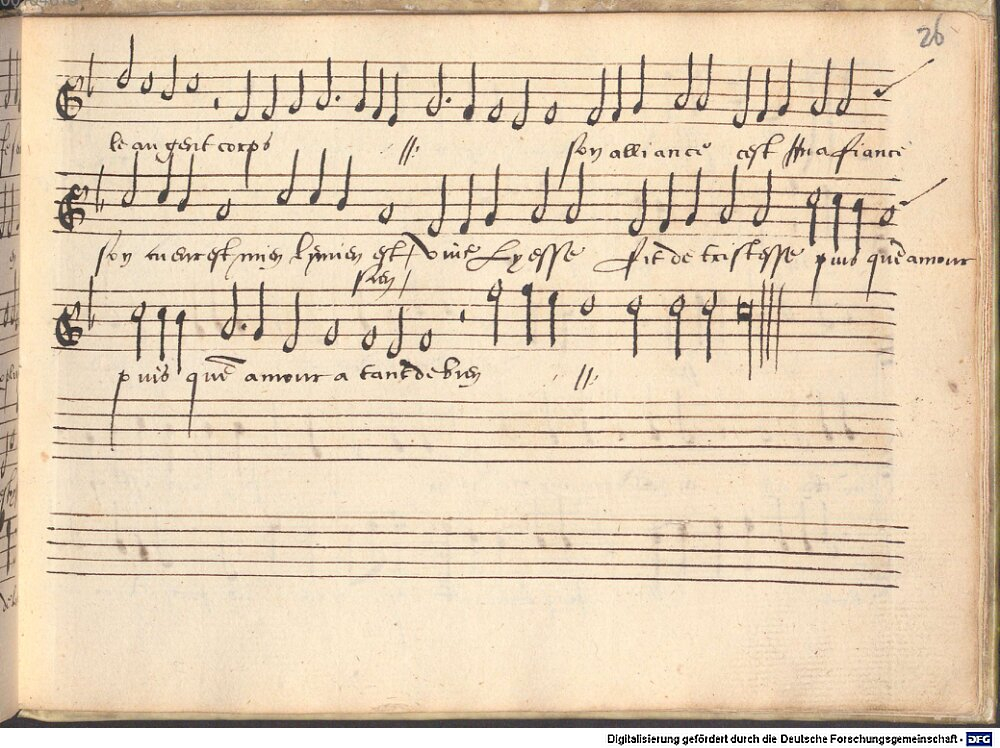 26
le au gent corps //: son alliance cest ma fiance
son cueur est mien le mien est / vive Lyesse Fit de tristesse puis quē amour
sien /
puis quē amour a tant de bien //:
Digitalisierung gefördert durch die Deutsche Forschungsgemeinschaft - DFG